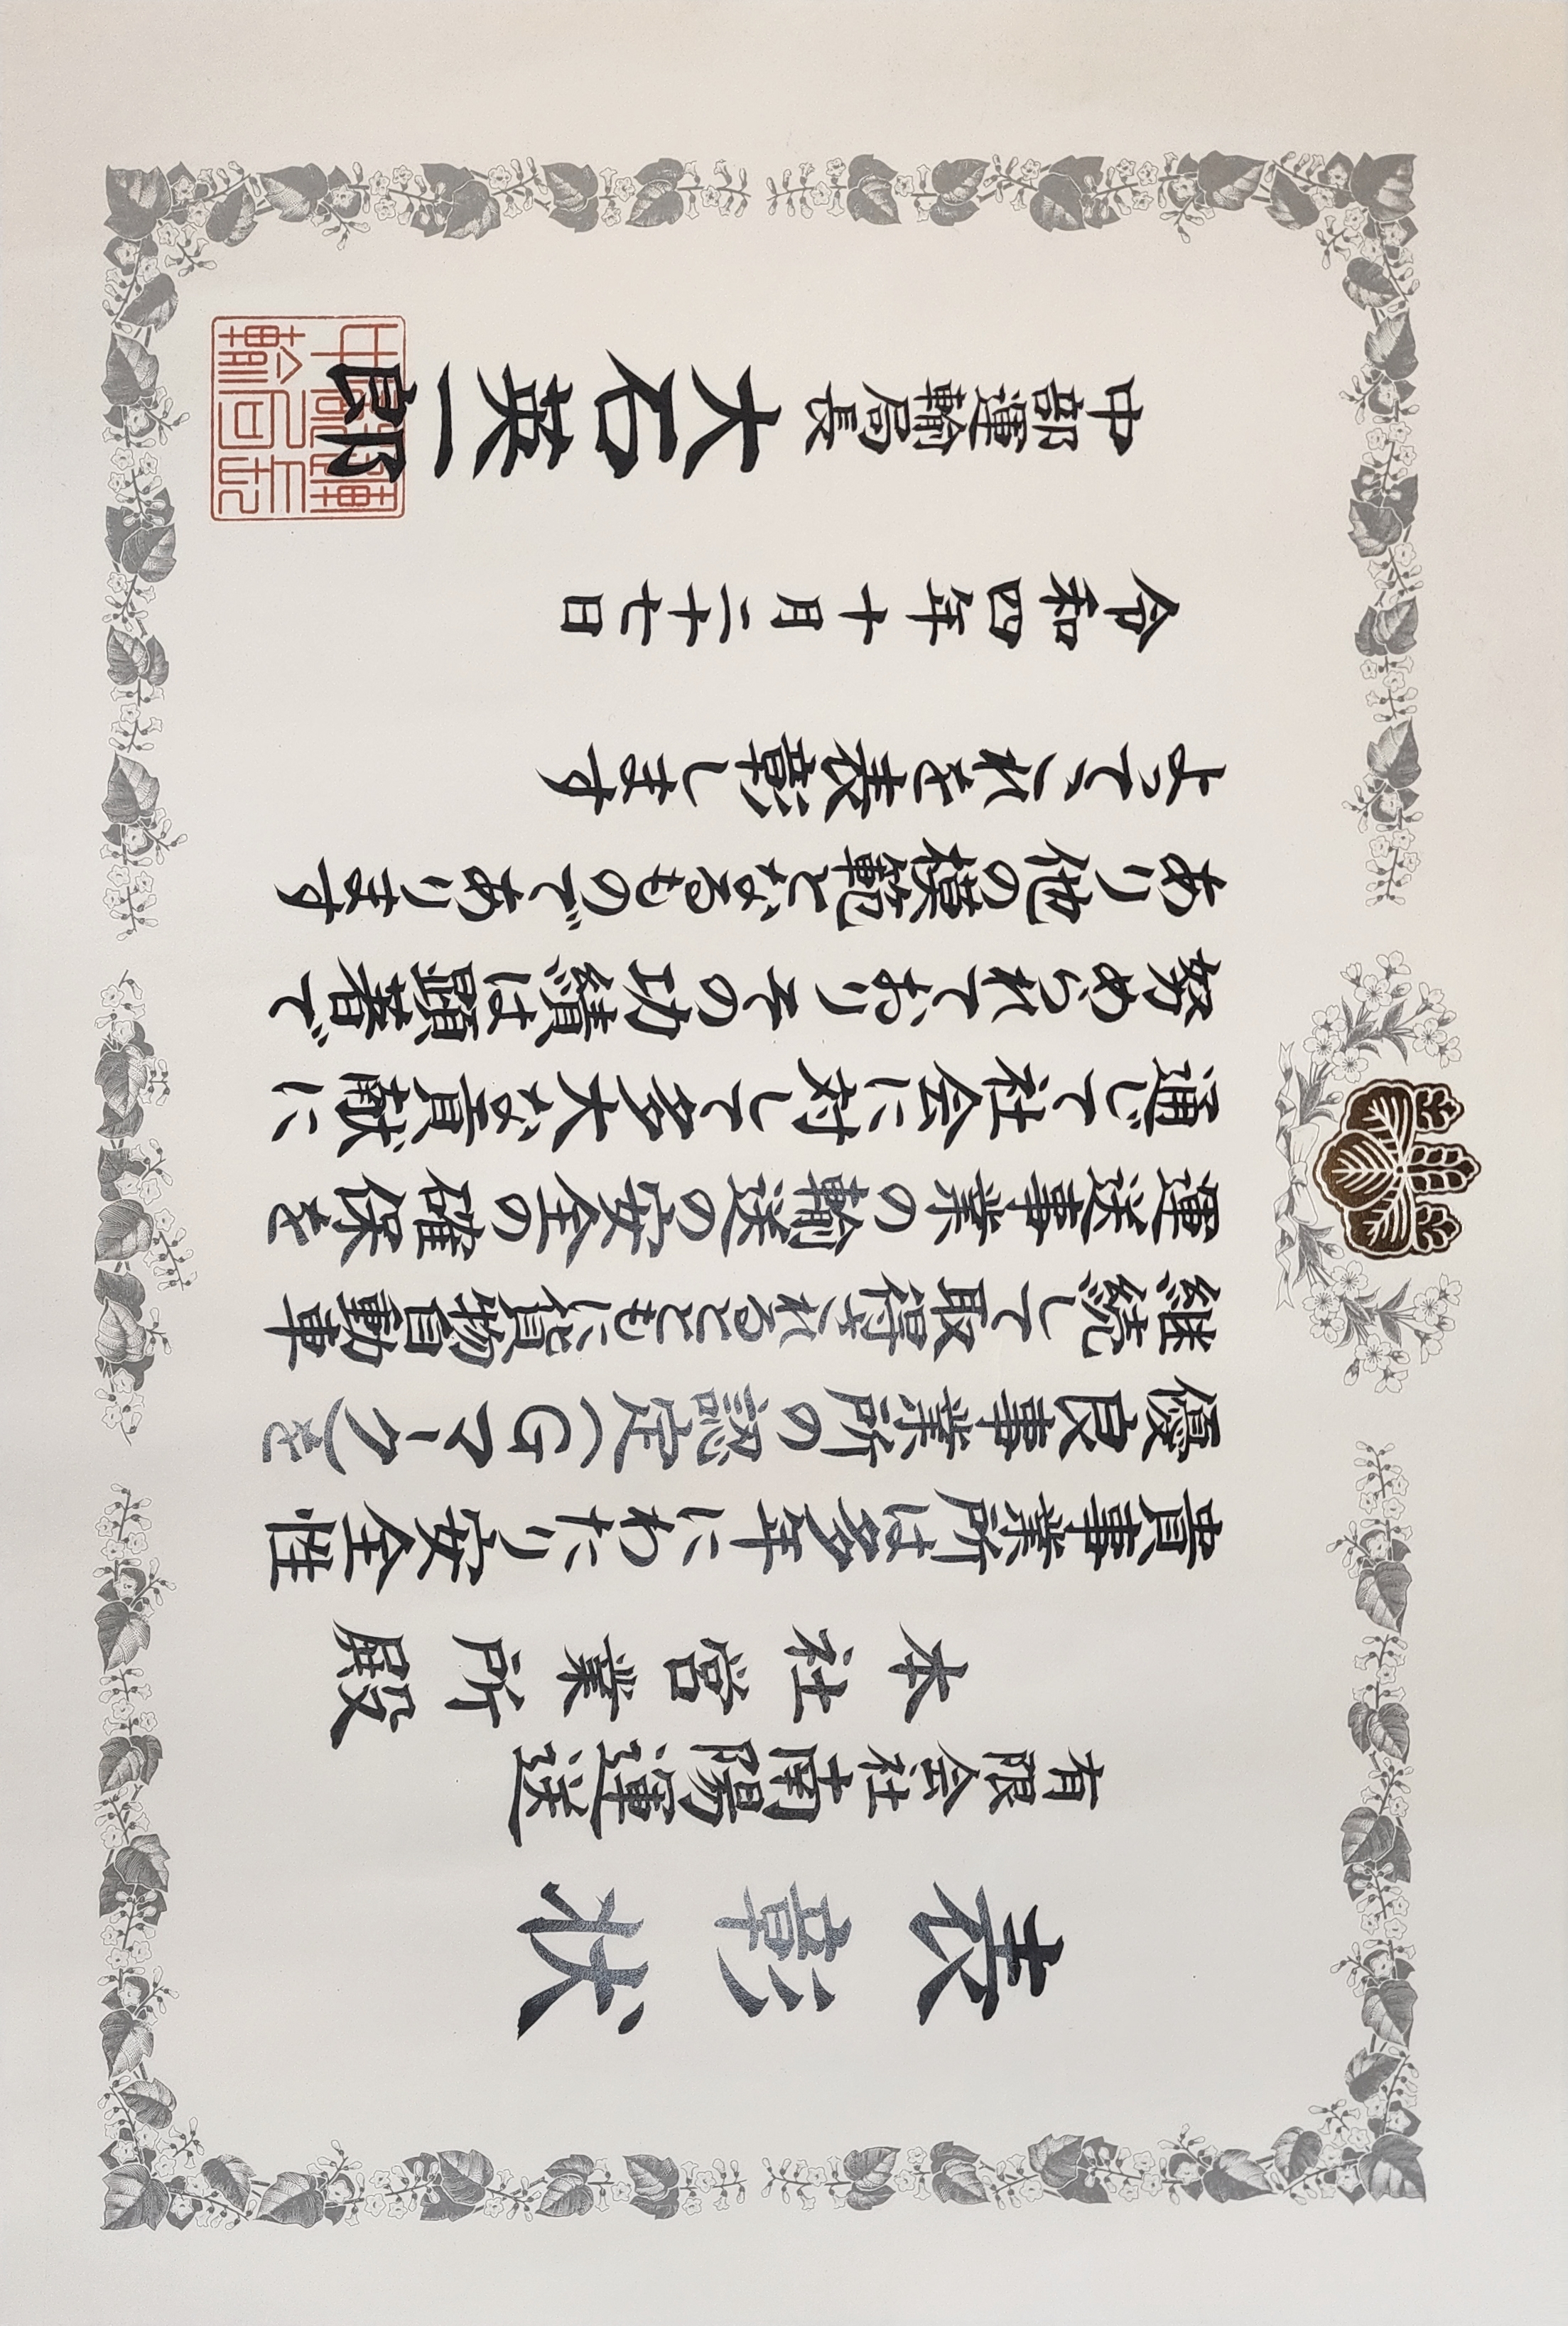 表彰状
有限会社南陽運送
本社営業所殿
貴事業所は多年にわたり安全性
優良事業所の認定(Gマーク)を
継続して取得されるとともに貨物自動車
運送事業の輸送の安全の確保を
通じて社会に対して多大な貢献に
努められておりその功績は顕著で
あり他の模範となるものであります
よってこれを表彰します
令和四年十月二十七日
中部運輸局長 大石英一郎
中部運輸局長印